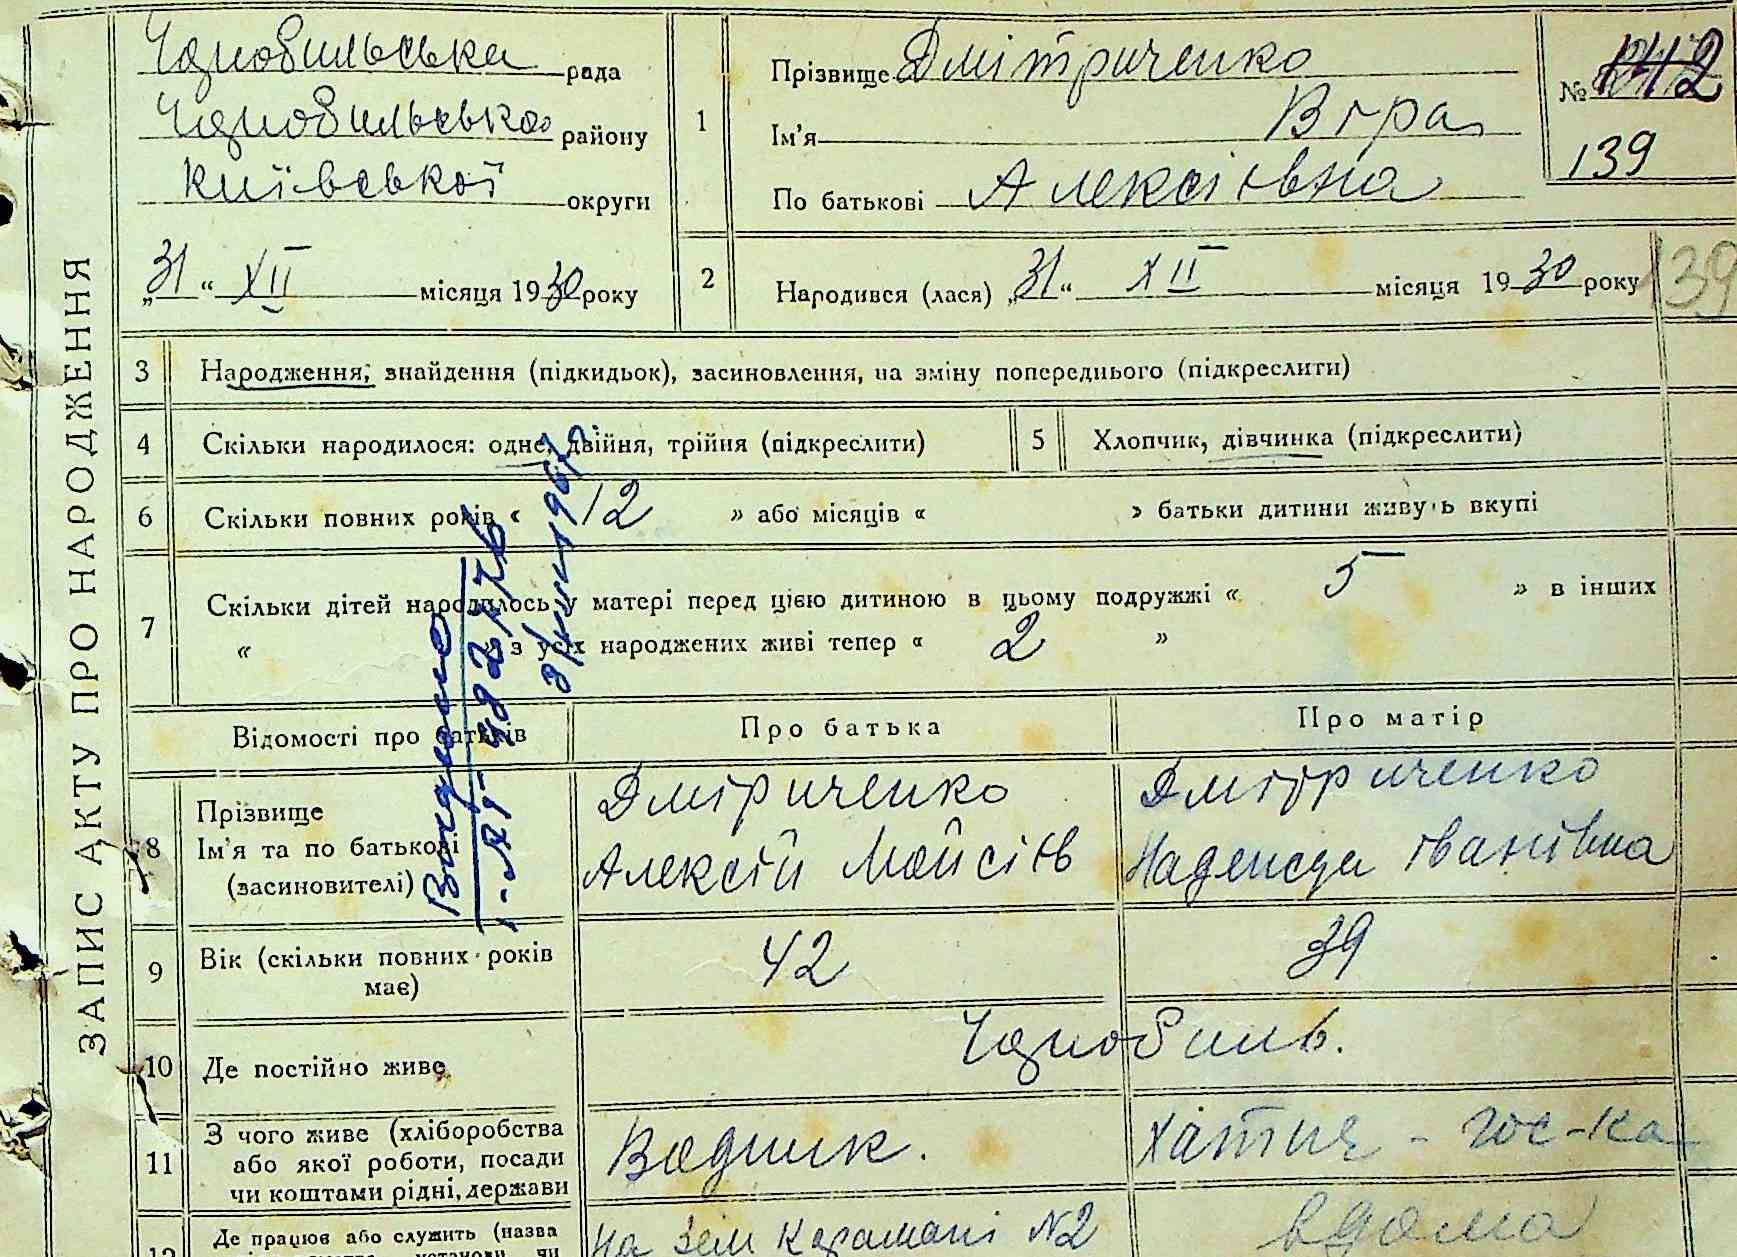 ЗАПИС АКТУ ПРО НАРОДЖЕННЯ
Чорнобильська рада
Чорнобильськ району
Київської округи
„31“ XII місяця 1930 року
1
Прізвище Дмітриченко
Ім'я Віра
По батькові Алексіївна
№ 142
139
139
2
Народився (лася) „31“ XII місяця 1930 року
3 Народження, знайдення (підкидьок), засиновлення, на зміну попереднього (підкреслити)
4 Скільки народилося: одне, двійня, трійня (підкреслити)
5 Хлопчик, дівчинка (підкреслити)
6 Скільки повних років « 12 » або місяців « » батьки дитини живуть вкупі
7 Скільки дітей народилось у матері перед цією дитиною в цьому подружжі « 5 » в інших
« » з усіх народжених живі тепер « 2 »
Відомості про батьків Про батька Про матір
8 Прізвище
Ім'я та по батькові
(засиновителі)
Дмітриченко
Алексій Мойсіїв
Дмітриченко
Надежда Іванівна
9 Вік (скільки повних років має) 42 39
10 Де постійно живе Чорнобиль.
11 З чого живе (хліборобства
або якої роботи, посади
чи коштами рідні, держави
Водник. Хатня - гос-ка
12 Де працює або служить (назва
На Зем Карамані №2 вдома